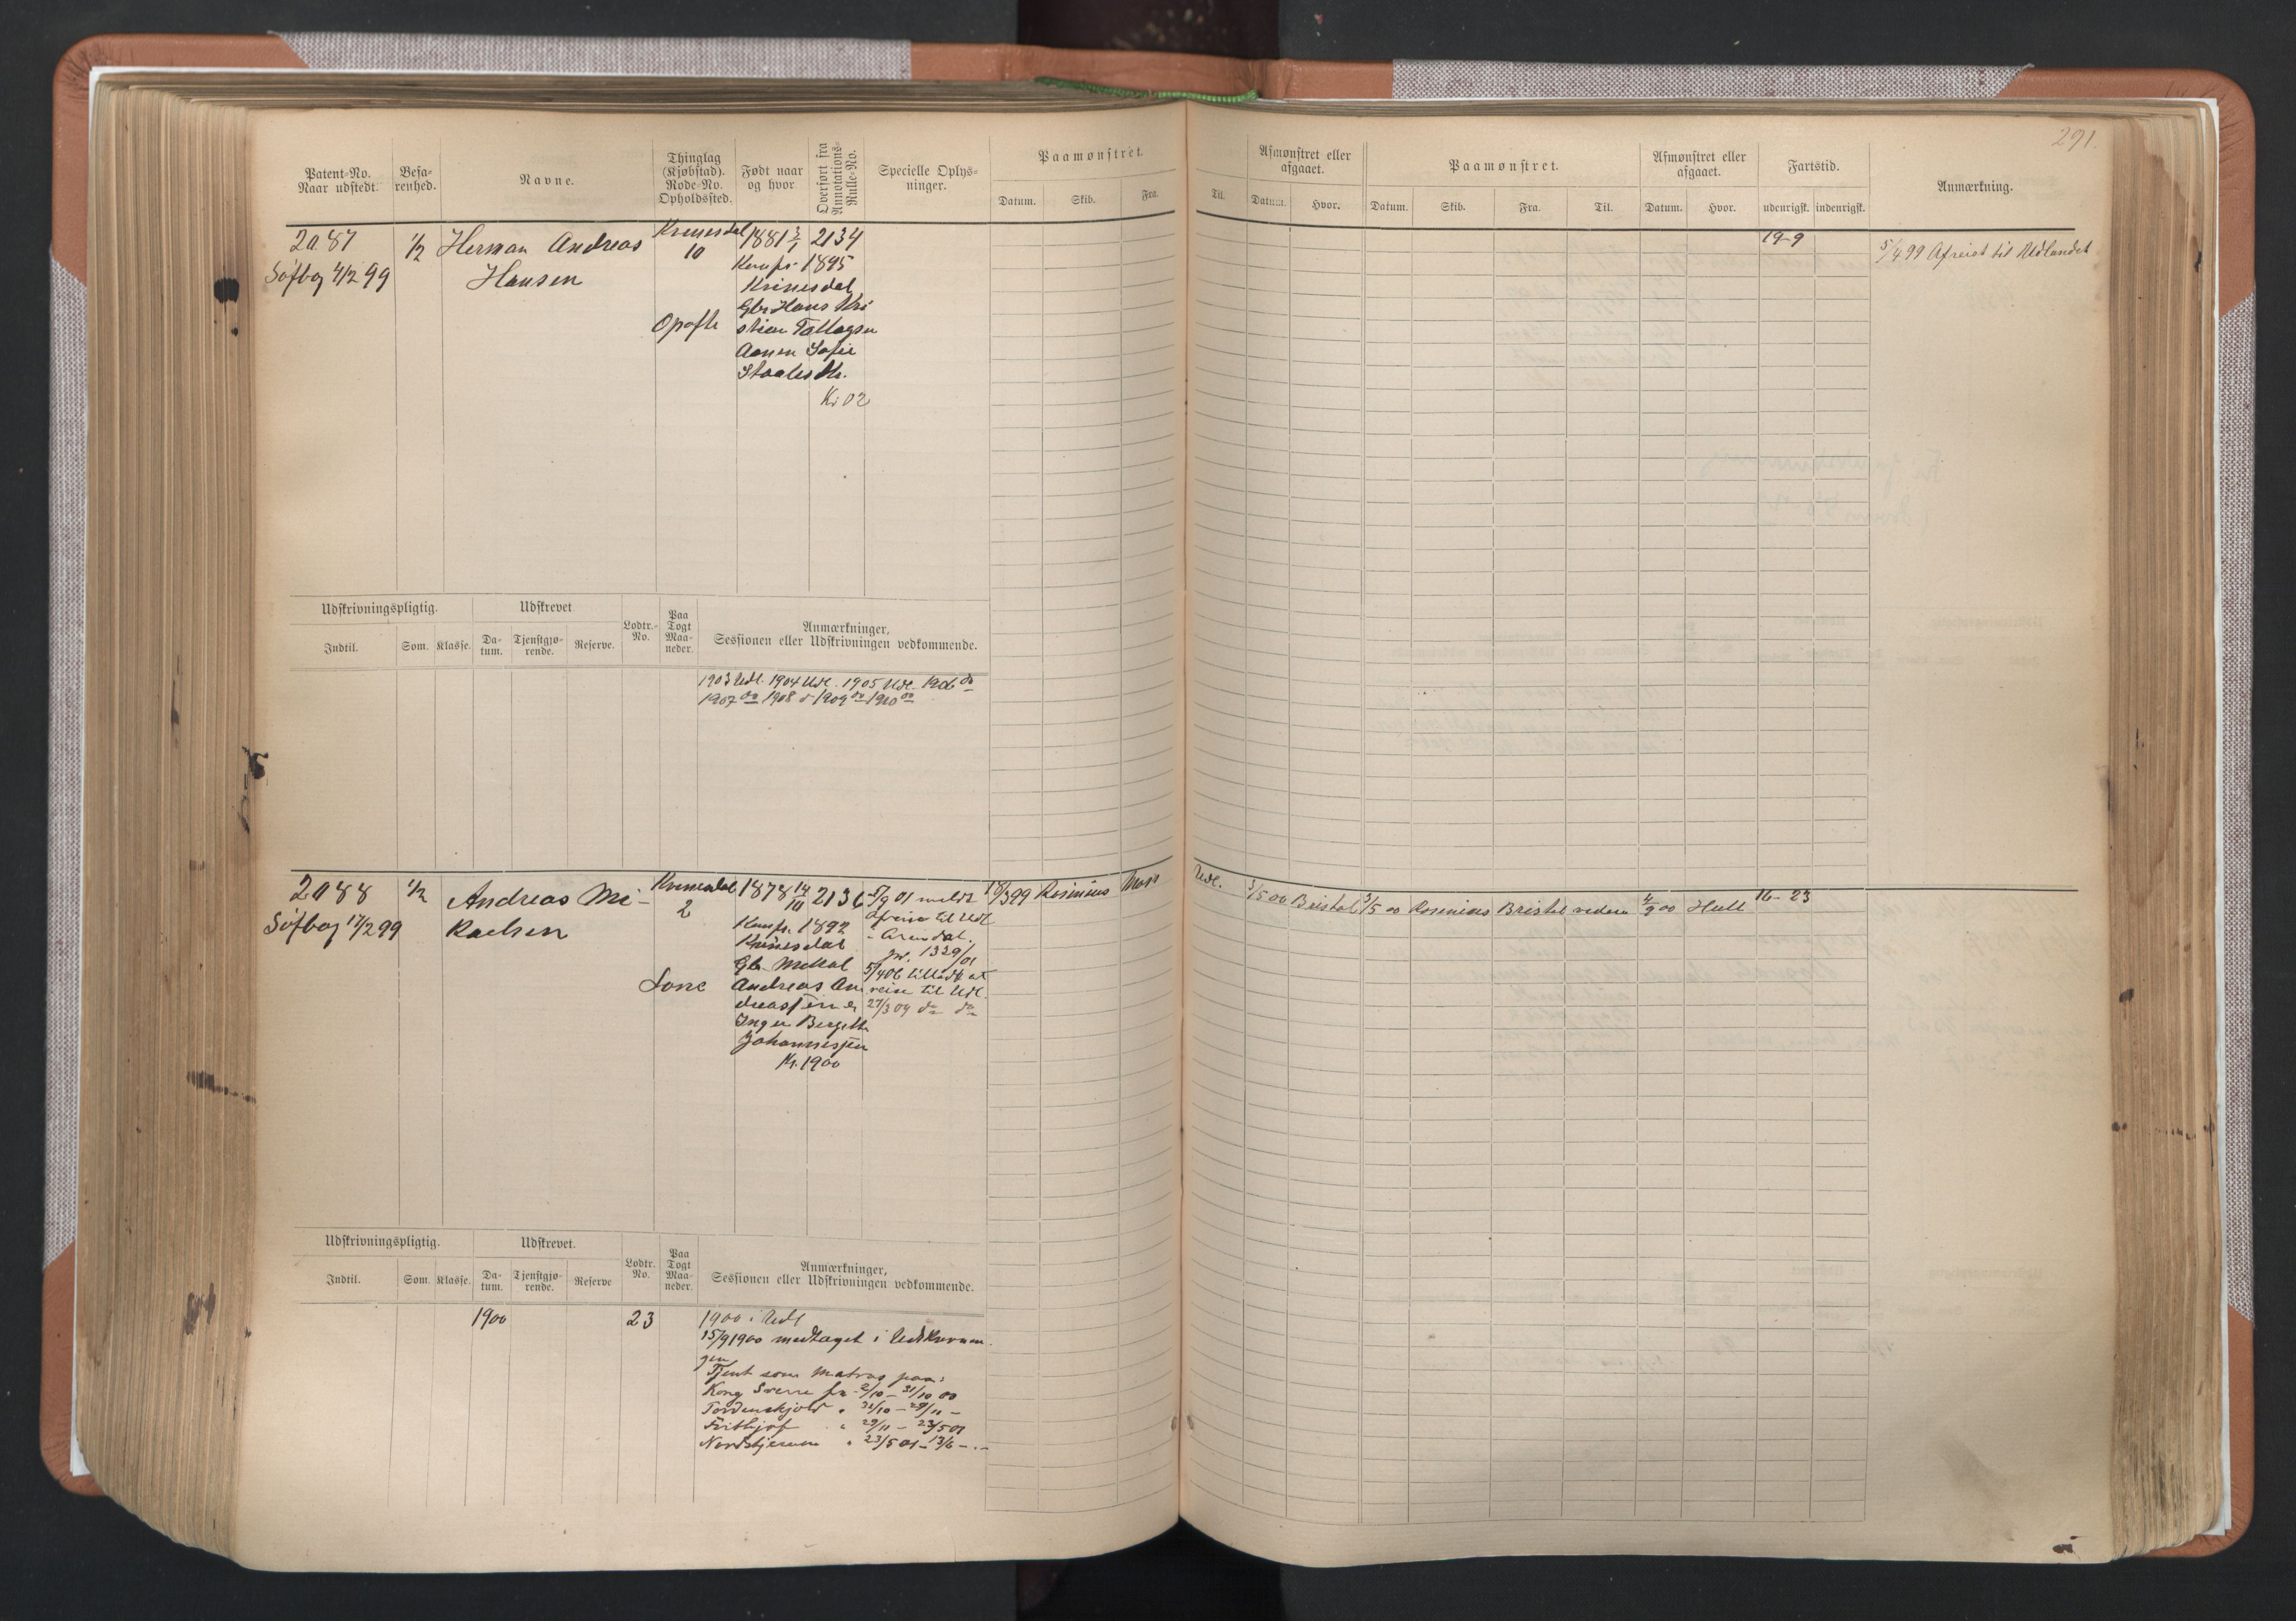 291.
Patent-No.
Naar udstedt.
Befa-
renhed.
Navne.
Thinglag
(Kjøbstad).
Rode-No.
Opholdssted.
Født naar
og hvor
Overført fra
Annotations-
Rulle-No.
Specielle Oplys-
ninger.
Paamønstret.
Datum. Skib. Fra.
Til.
Afmønstret eller
afgaaet.
Datum. Hvor.
Paamønstret.
Datum. Skib. Fra. Til.
Afmønstret eller
afgaaet.
Datum. Hvor.
Fartstid.
udenrigsk. indenrigsk.
Anmærkning.
2087
Søfbog 4/2 99
1/2
Herman Andreas
Hansen
10
Opofte
1881 3/1 2134
Konf. 1895
Gbr Hans Kri
stian
Sofie
Kr 02
19-9
5/4 99 Afreist til Udlandet
Udskrivningspligtig.
Indtil. Som. Klasse.
Udskrevet
Da-
tum.
Tjenstgjø-
rende.
Reserve.
Lodtr.-
No.
Paa
Togt
Maa-
neder.
Anmærkninger,
Sessionen eller Udskrivningen vedkommende.
1903 Udl. 1904 Udl. 1905 Udl. 1906 do
1907 do 1908 d 1909 do 1910 do
2088
Søfbog 17/2 99
1/2
Andreas Mi-
kaelsen
2
Lone
1878 14/10 2136
Konf. 1892
Gbr Mikal
Andreas An
dreassen &
Inger Bergitte
Johannessen
Kr. 1900
5/9 01 meldt
afreise til Udl
- Arendal.
jr. 1329/01
5/4 06 tilladt at
reise til Udl.
27/3 09 do do
18/3 99 Rosinius Moss
Udl.
3/5 00 Bristol 3/5 00 Rosinius Bristol videre 4/9 00 Hull 16-23
Udskrivningspligtig.
Indtil. Som. Klasse.
Udskrevet.
Da-
tum.
Tjenstgjø-
rende.
Reserve
Lodtr.
No.
Paa
Togt
Maa-
neder.
Anmærkninger,
Sessionen eller Udskrivningen vedkommende.
1900 23 1900 i Udl
15/9 1900 medtaget i Udskrivnin-
gen
Tjent som Matros paa:
Kong Sverre fra 2/10 - 31/10 00
Tordenskjold " 31/10 - 29/11 -
Frithjof " 29/11 - 23/5 01
Nordstjernen " 23/5 01 - 13/6 - . -